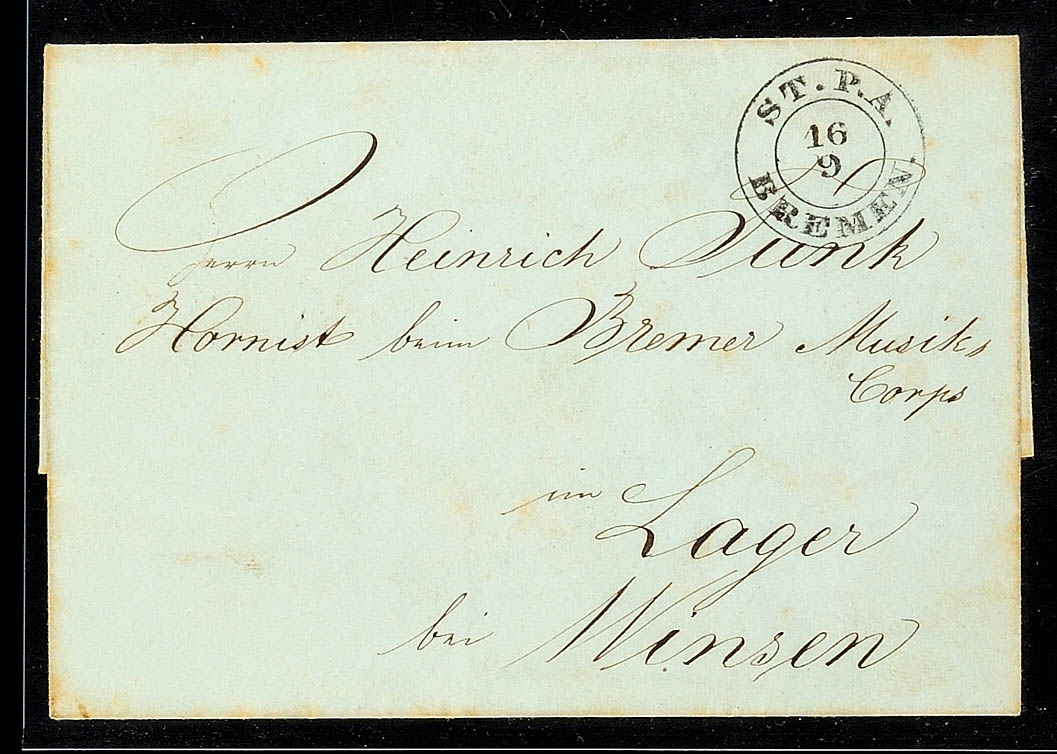 ST. P. A.
16
9
BREMEN
Herrn Heinrich Funk
Hornist beim Bremer Musik,
Corps
im Lager
bei Winsen